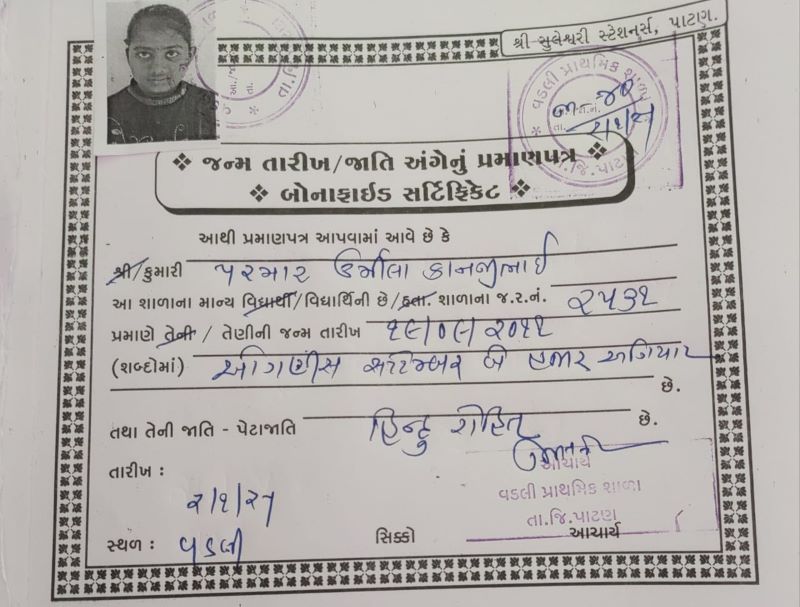 શ્રી સુલેશ્વરી સ્ટેશનર્સ, પાટણ.
વડલી પ્રાથમિક શાળા
તા.જિ.પાટણ
❖ જન્મ તારીખ/જાતિ અંગેનું પ્રમાણપત્ર ❖
❖ બોનાફાઈડ સર્ટિફિકેટ ❖
આથી પ્રમાણપત્ર આપવામાં આવે છે કે
શ્રી/કુમારી પરમાર ઉર્મીલા કાનજીભાઈ
આ શાળાના માન્ય વિદ્યાર્થી/વિદ્યાર્થિની છે/હતા. શાળાના જ.ર.નં. ૨૫૩૨
પ્રમાણે તેની / તેણીની જન્મ તારીખ ૧૯/૦૯/૨૦૧૧
(શબ્દોમાં) ઓગણીસ સપ્ટેમ્બર બે હજાર અગિયાર
છે.
તથા તેની જાતિ - પેટાજાતિ હિન્દુ રોહિત છે.
તારીખ :
૨/૧/૨૫
આચાર્ય
વડલી પ્રાથમિક શાળા
તા.જિ.પાટણ
સ્થળ : વડલી સિક્કો આચાર્ય